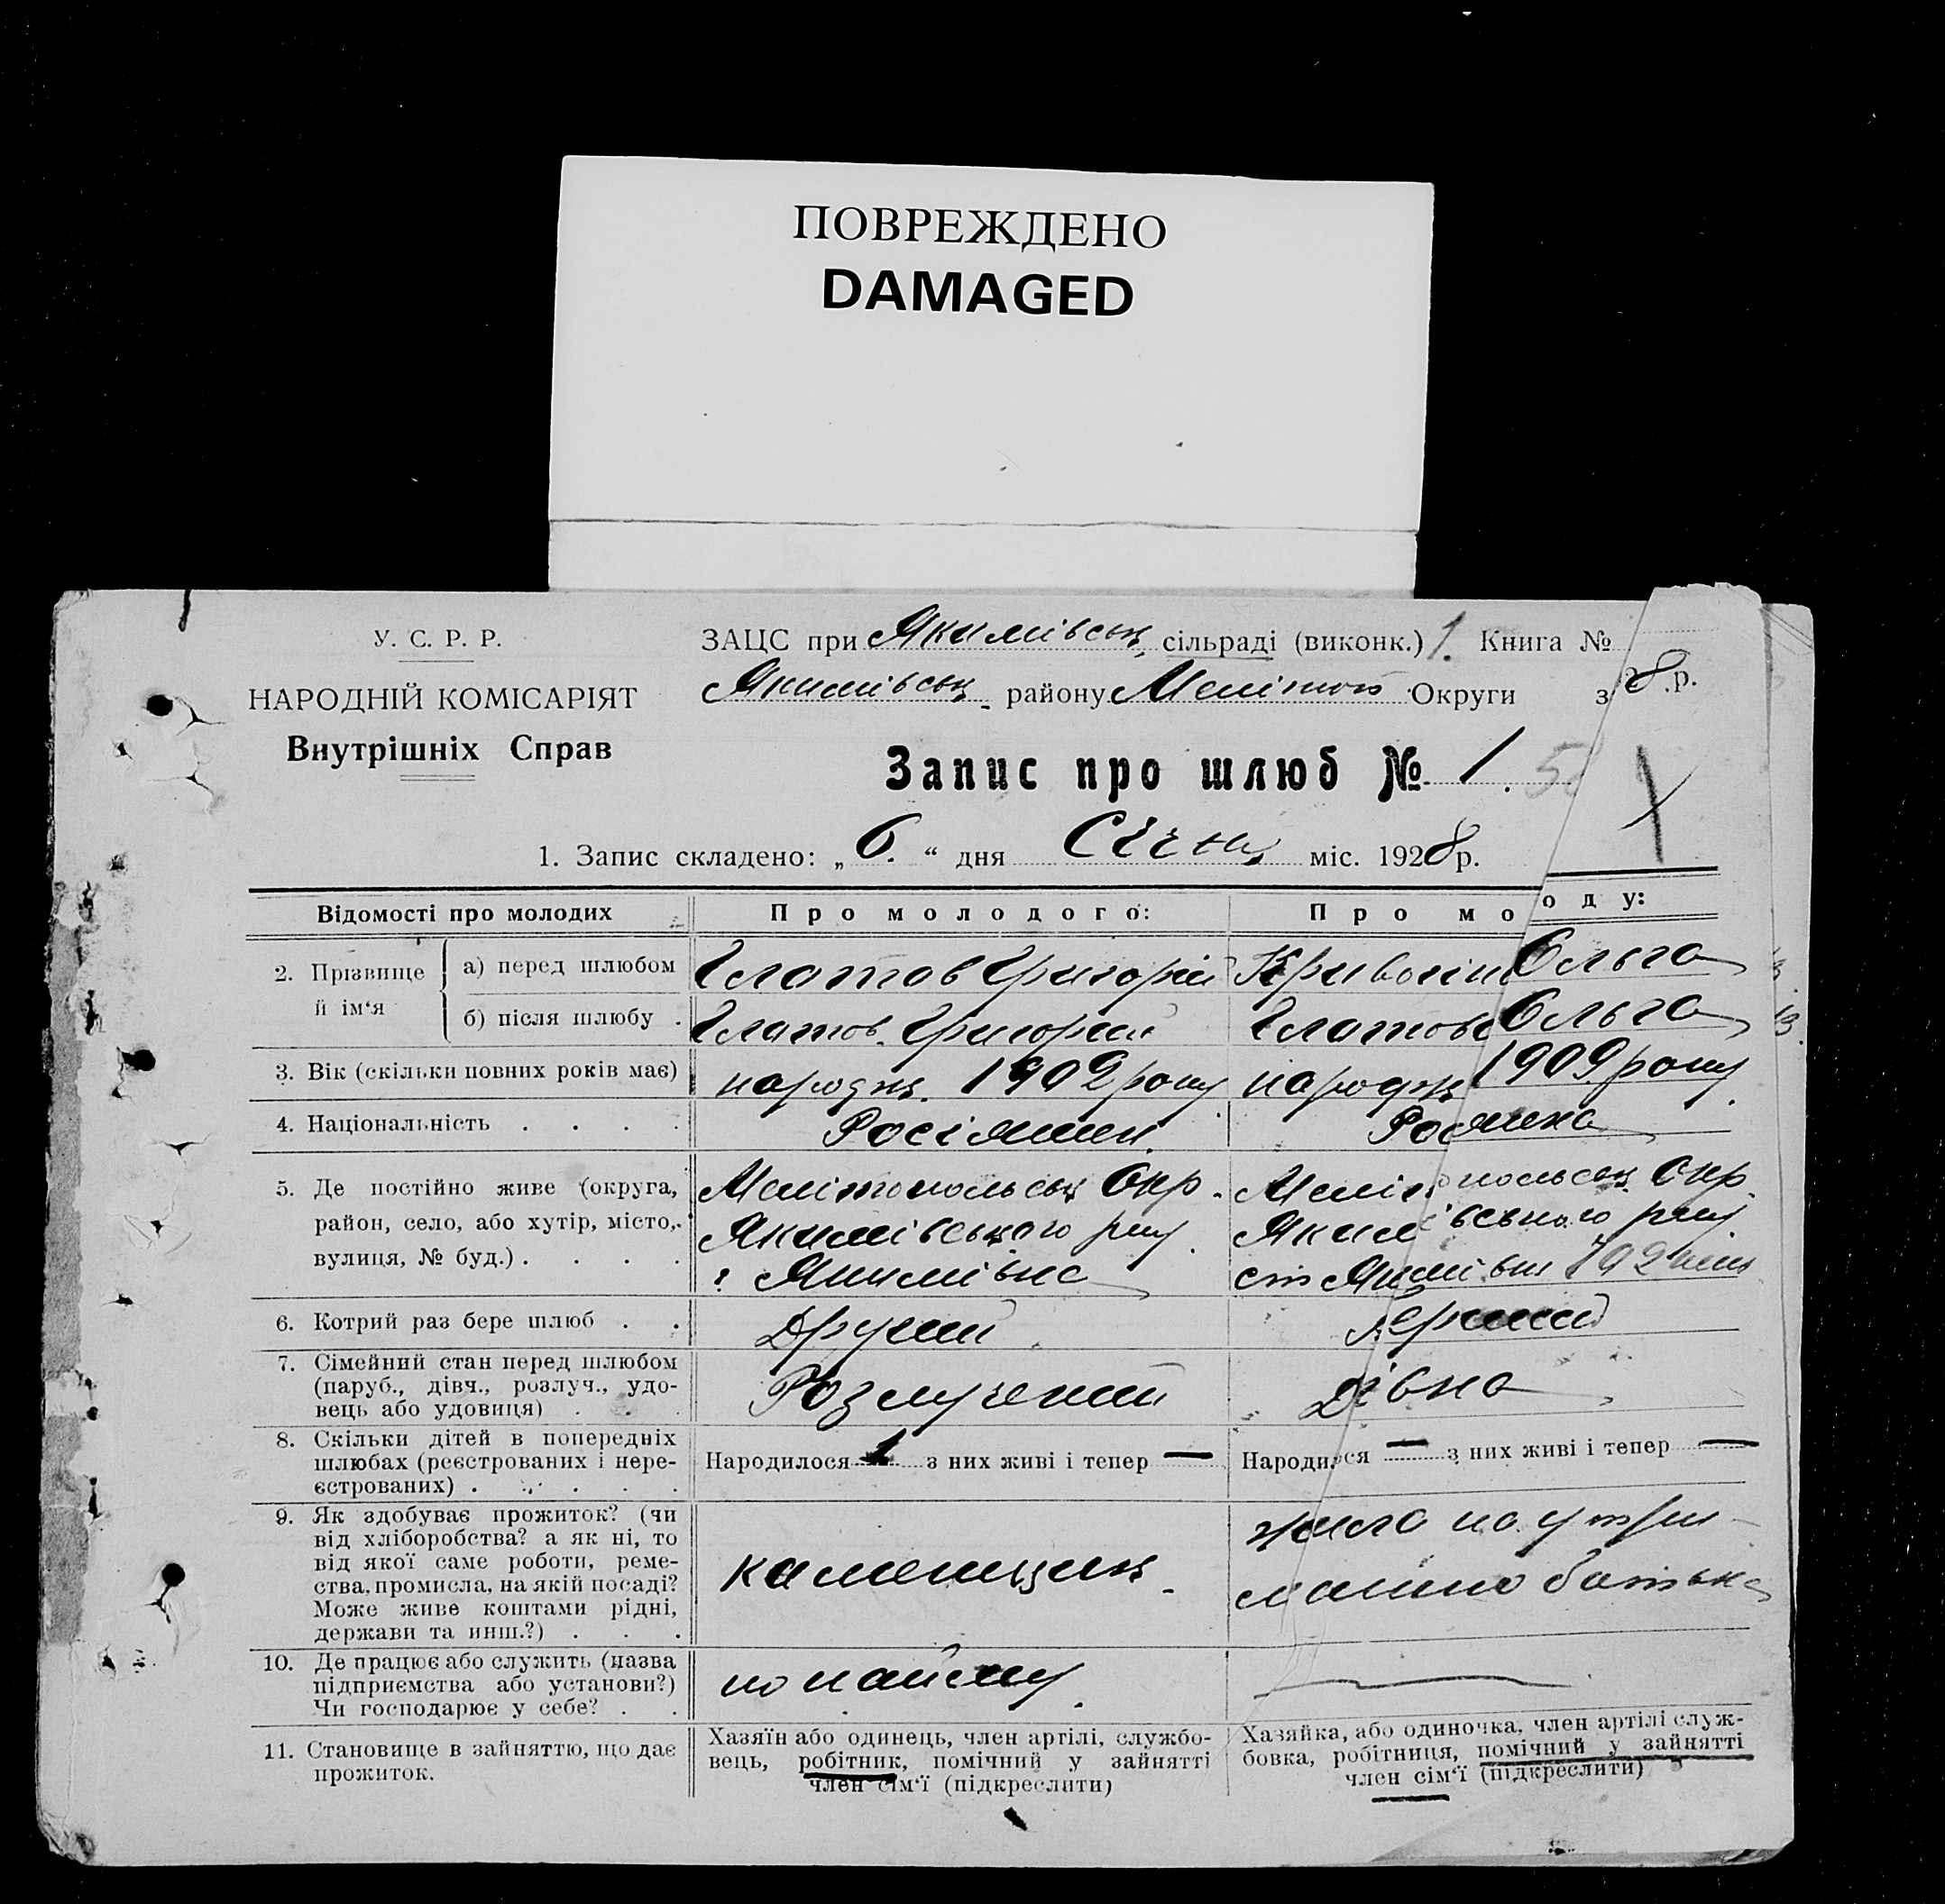 ПОВРЕЖДЕНО
DAMAGED
У. С. Р. Р.
НАРОДНІЙ КОМІСАРІЯТ
Внутрішніх Справ
ЗАЦС при Якимівськ. сільраді (виконк.) 1. Книга №
Якимівськ. району Меліто Округи з 8 р.
Запис про шлюб № 1.
1. Запис складено: „ 6. “ дня Січня міс. 1928 р.
Відомості про молодих
Про молодого:
Про молоду:
2. Прізвище й ім‘я
а) перед шлюбом
Григорій
Ольга
б) після шлюбу .
Григорий
Ольга
3. Вік (скільки повних років має)
народж. 1902 року
народж 1909 року.
4. Національність . . . .
Росіянин
5. Де постійно живе (округа,
район, село, або хутір, місто,
вулиця, № буд.) . . . .
Мелітопольськ Окр.
Якимівського р-ну.
Якимівка
Мелітопольськ. Окр.
Якимівського р-ну
ст Якимівка
6. Котрий раз бере шлюб . .
Другий
Перший
7. Сімейний стан перед шлюбом
(паруб., дівч., розлуч., удо-
вець або удовиця) . . .
Розлучений
Дівка
8. Скільки дітей в попередніх
шлюбах (реєстрованих і нере-
єстрованих) . . . . .
Народилося 1 з них живі і тепер —
Народилося — з них живі і тепер —
9. Як здобуває прожиток? (чи
від хліборобства? а як ні, то
від якої саме роботи, реме-
ства, промисла, на якій посаді?
Може живе коштами рідні,
держави та инш.?) . . .
каменщик
жила на утри-
манню батька
10. Де працює або служить (назва
підприємства або установи?)
Чи господарює у себе? . .
по найому.
—
11. Становище в зайняттю, що дає
прожиток.
Хазяїн або одинець, член аргілі, службо-
вець, робітник, помічний у зайнятті
член сім‘ї (підкреслити)
Хазяйка, або одиночка, член артілі служ-
бовка, робітниця, помічний у зайнятті
член сім‘ї (підкреслити)